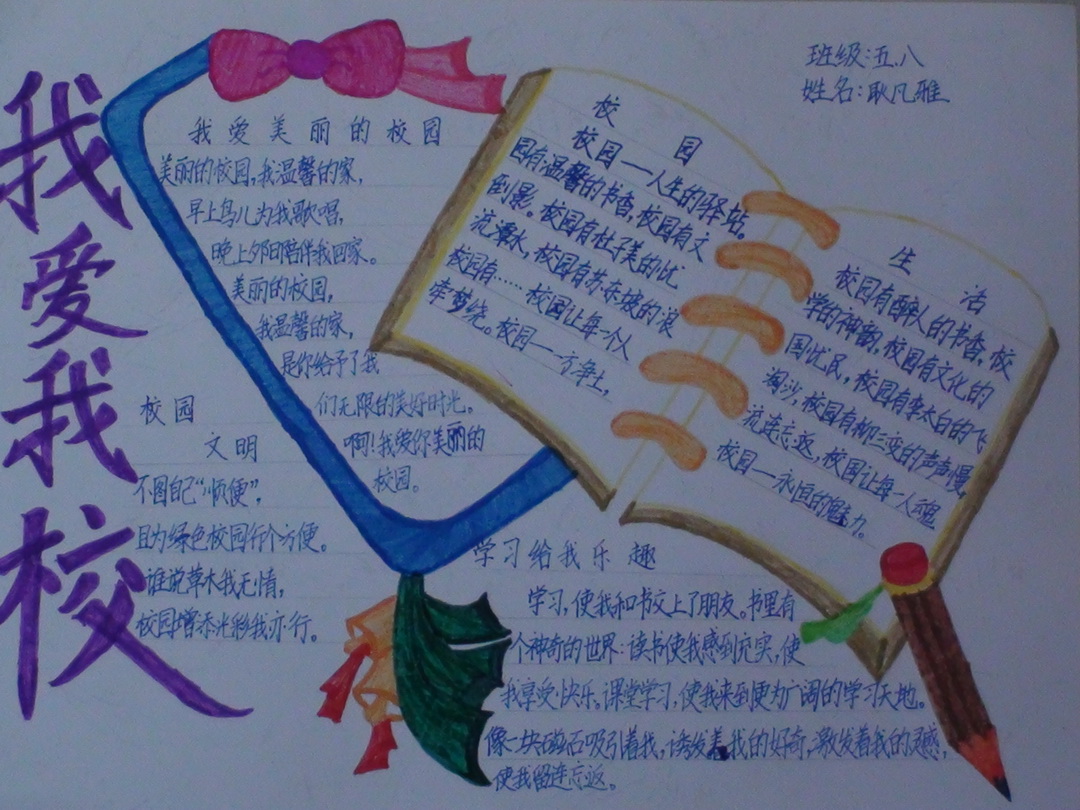 我爱我校
班级:五.八
姓名:耿凡雅
我爱美丽的校园
美丽的校园,我温馨的家,
早上鸟儿为我歌唱,
晚上夕阳陪伴我回家。
美丽的校园,
我温馨的家,
是你给予了我
们无限的美好时光。
啊!我爱你美丽的
校园。
校园
文明
不图自己“顺便”,
且为绿色校园行个方便。
谁说草木我无情,
校园增添光彩我亦行。
校园
校园——人生的驿站。
园有温馨的书香,校园有文
倒影。校园有杜子美的忧
流潭水,校园有苏东坡的浪
校园有……校园让每一个人
牵梦绕。校园——一方净土,
生活
校园有醉人的书香,校
学的神韵,校园有文化的
国忧民,校园有李太白的飞
淘沙,校园有柳三变的声声慢,
流连忘返,校园让每一人魂
校园—永恒的魅力。
学习给我乐趣
学习,使我和书交上了朋友。书里有
个神奇的世界:读书使我感到充实,使
我享受快乐。课堂学习,使我来到更为广阔的学习天地。
像一块磁石吸引着我,诱发着我的好奇,激发着我的灵感,
使我留连忘返。